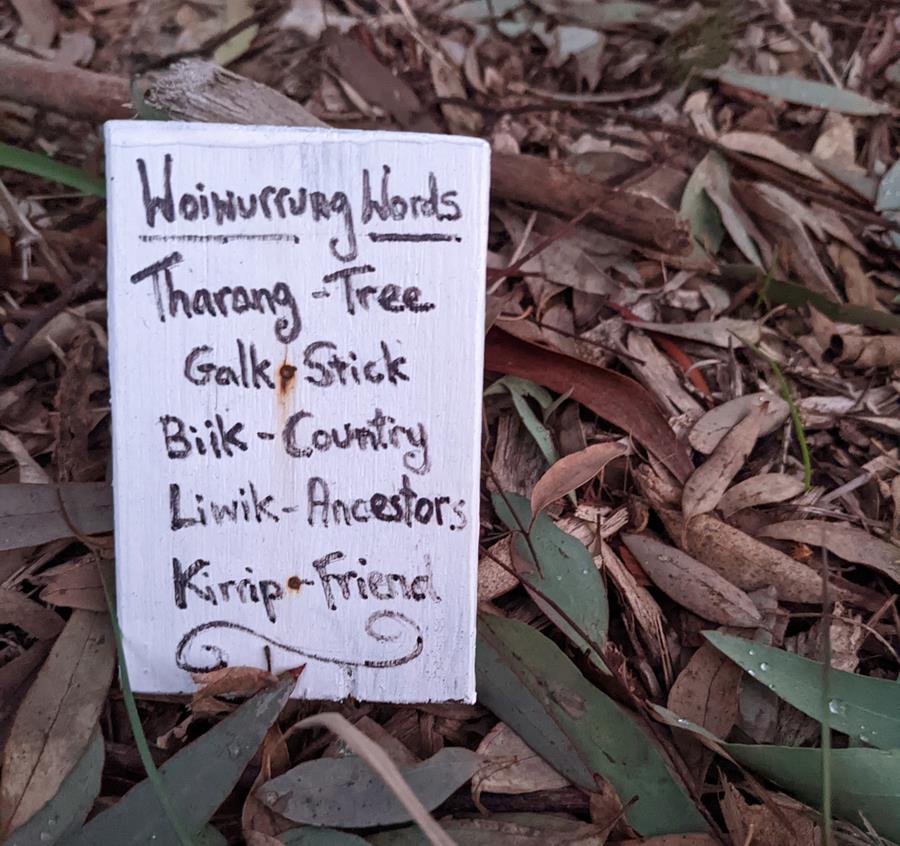 Woiwurrung Words
Tharang - Tree
Galk - Stick
Biik - Country
Liwik - Ancestors
Kirrip - Friend